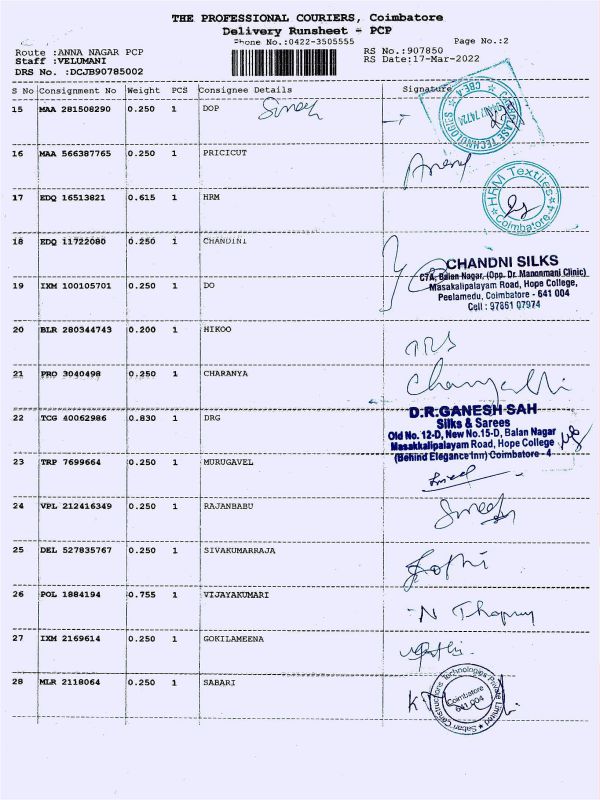 THE PROFESSIONAL COURIERS, Coimbatore
Delivery Runsheet - PCP
Phone No.:0422-3505555
Page No.:2
Route :ANNA NAGAR PCP
RS No.:907850
Staff :VELUMANI
RS Date:17-Mar-2022
DRS No. :DCJB90785002
S No Consignment No Weight PCS Consignee Details Signature
15 MAA 281508290 0.250 1 DOP
16 MAA 566387765 0.250 1 PRICICUT
17 EDQ 16513821 0.615 1 HRM
HRM Textiles
Coimbatore-4
18 EDQ 11722080 0.250 1 CHANDINI
CHANDNI SILKS
C7A, Balan Nagar, (Opp. Dr. Manonmani Clinic)
Masakalipalayam Road, Hope College,
Peelamedu, Coimbatore - 641 004
Cell : 97861 07974
19 IXM 100105701 0.250 1 DO
20 BLR 280344743 0.200 1 HIKOO
21 PRO 3040498 0.250 1 CHARANYA
22 TCG 40062986 0.830 1 DRG
D.R.GANESH SAH
Silks & Sarees
Old No. 12-D, New No.15-D, Balan Nagar
Masakkalipalayam Road, Hope College
(Behind Elegance Inn) Coimbatore - 4
23 TRP 7699664 0.250 1 MURUGAVEL
24 VPL 212416349 0.250 1 RAJANBABU
25 DEL 527835767 0.250 1 SIVAKUMARRAJA
26 POL 1884194 0.755 1 VIJAYAKUMARI
27 IXM 2169614 0.250 1 GOKILAMEENA
28 MLR 2118064 0.250 1 SABARI
Sabari Constructions Technologies Private Limited
Coimbatore
641 004